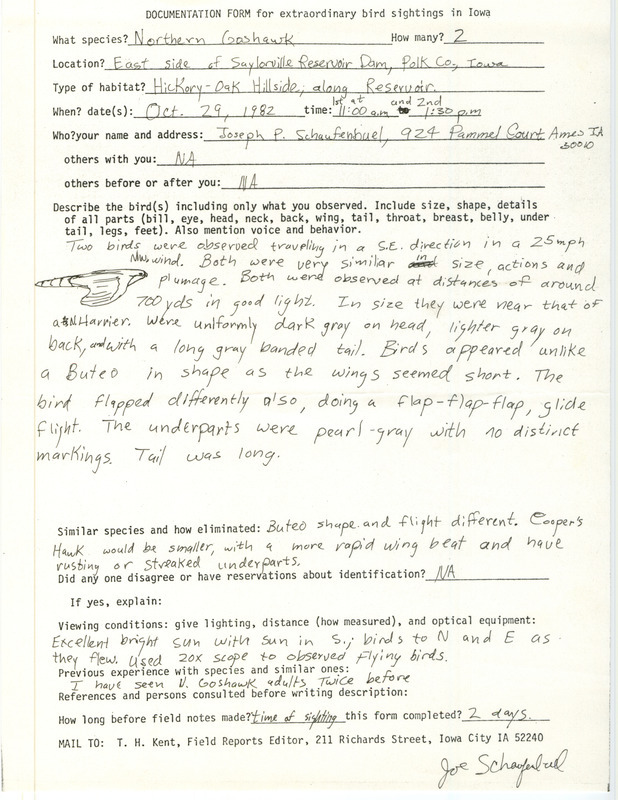 DOCUMENTATION FORM for extraordinary bird sightings in Iowa
What species? Northern Goshawk How many? 2
Location? East side of Saylorville Reservoir Dam, Polk Co., Iowa
Type of habitat? Hickory-Oak Hillside, along Reservoir.
When? date(s): Oct. 29, 1982 time: 1st at 11:00 a.m and 2nd 1:30 p.m
Who? your name and address: Joseph P. Schaufenbuel, 924 Pammel Court Ames IA 50010
others with you: NA
others before or after you: NA
Describe the bird(s) including only what you observed. Include size, shape, details
of all parts (bill, eye, head, neck, back, wing, tail, throat, breast, belly, under
tail, legs, feet). Also mention voice and behavior.
Two birds were observed traveling in a S.E. direction in a 25mph
NW wind. Both were very similar in size, actions and
plumage. Both were observed at distances of around
700 yds in good light. In size they were near that of
a N. Harrier. Were uniformly dark gray on head, lighter gray on
back, and with a long gray banded tail. Birds appeared unlike
a Buteo in shape as the wings seemed short. The
bird flapped differently also, doing a flap-flap-flap, glide
flight. The underparts were pearl-gray with no distinct
markings. Tail was long.
Similar species and how eliminated: Buteo shape and flight different. Cooper's
Hawk would be smaller, with a more rapid wing beat and have
rusting or streaked underparts.
Did any one disagree or have reservations about identification? NA
If yes, explain:
Viewing conditions: give lighting, distance (how measured), and optical equipment:
Excellent bright sun with sun in S.; birds to N and E as
they flew. Used 20x scope to observed flying birds.
Previous experience with species and similar ones:
I have seen N. Goshawk adults twice before
References and persons consulted before writing description:
How long before field notes made? time of sighting this form completed? 2 days.
MAIL TO: T. H. Kent, Field Reports Editor, 211 Richards Street, Iowa City IA 52240
Joe Schaufenbuel